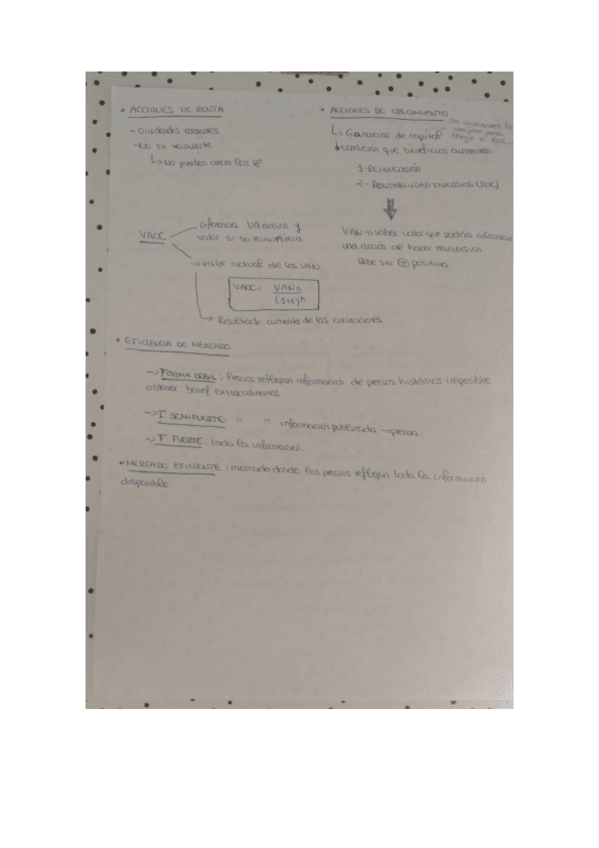 • ACCIONES DE RENTA
- Dividendos constantes
- No se reinvierte
↳ No pueden crecer los Bº
• ACCIONES DE CRECIMIENTO
↳ Ganancias de capital
condición que beneficios aumenten
1- REINVERSIÓN
2- RENTABILIDAD INVERSIÓN
VAN → saber valor que podría
una acción de haber reinversión
Debe ser ⊕ positivo.
VAOC
diferencia VA acción y
valor si no reinvirtiera
→ valor actual de los VAN
VAOC =
VAN
(1+k)ⁿ
→ Resultado aumento de las
• EFICIENCIA DE MERCADO
→ FORMA DÉBIL: Precios reflejan información de precios históricos imposible
obtener benef. extraordinarios.
→ F. SEMIFUERTE: " " información publicada → prensa.
→ F. FUERTE: toda la información.
• MERCADO EFICIENTE: mercado donde los precios reflejan toda la información
disponible